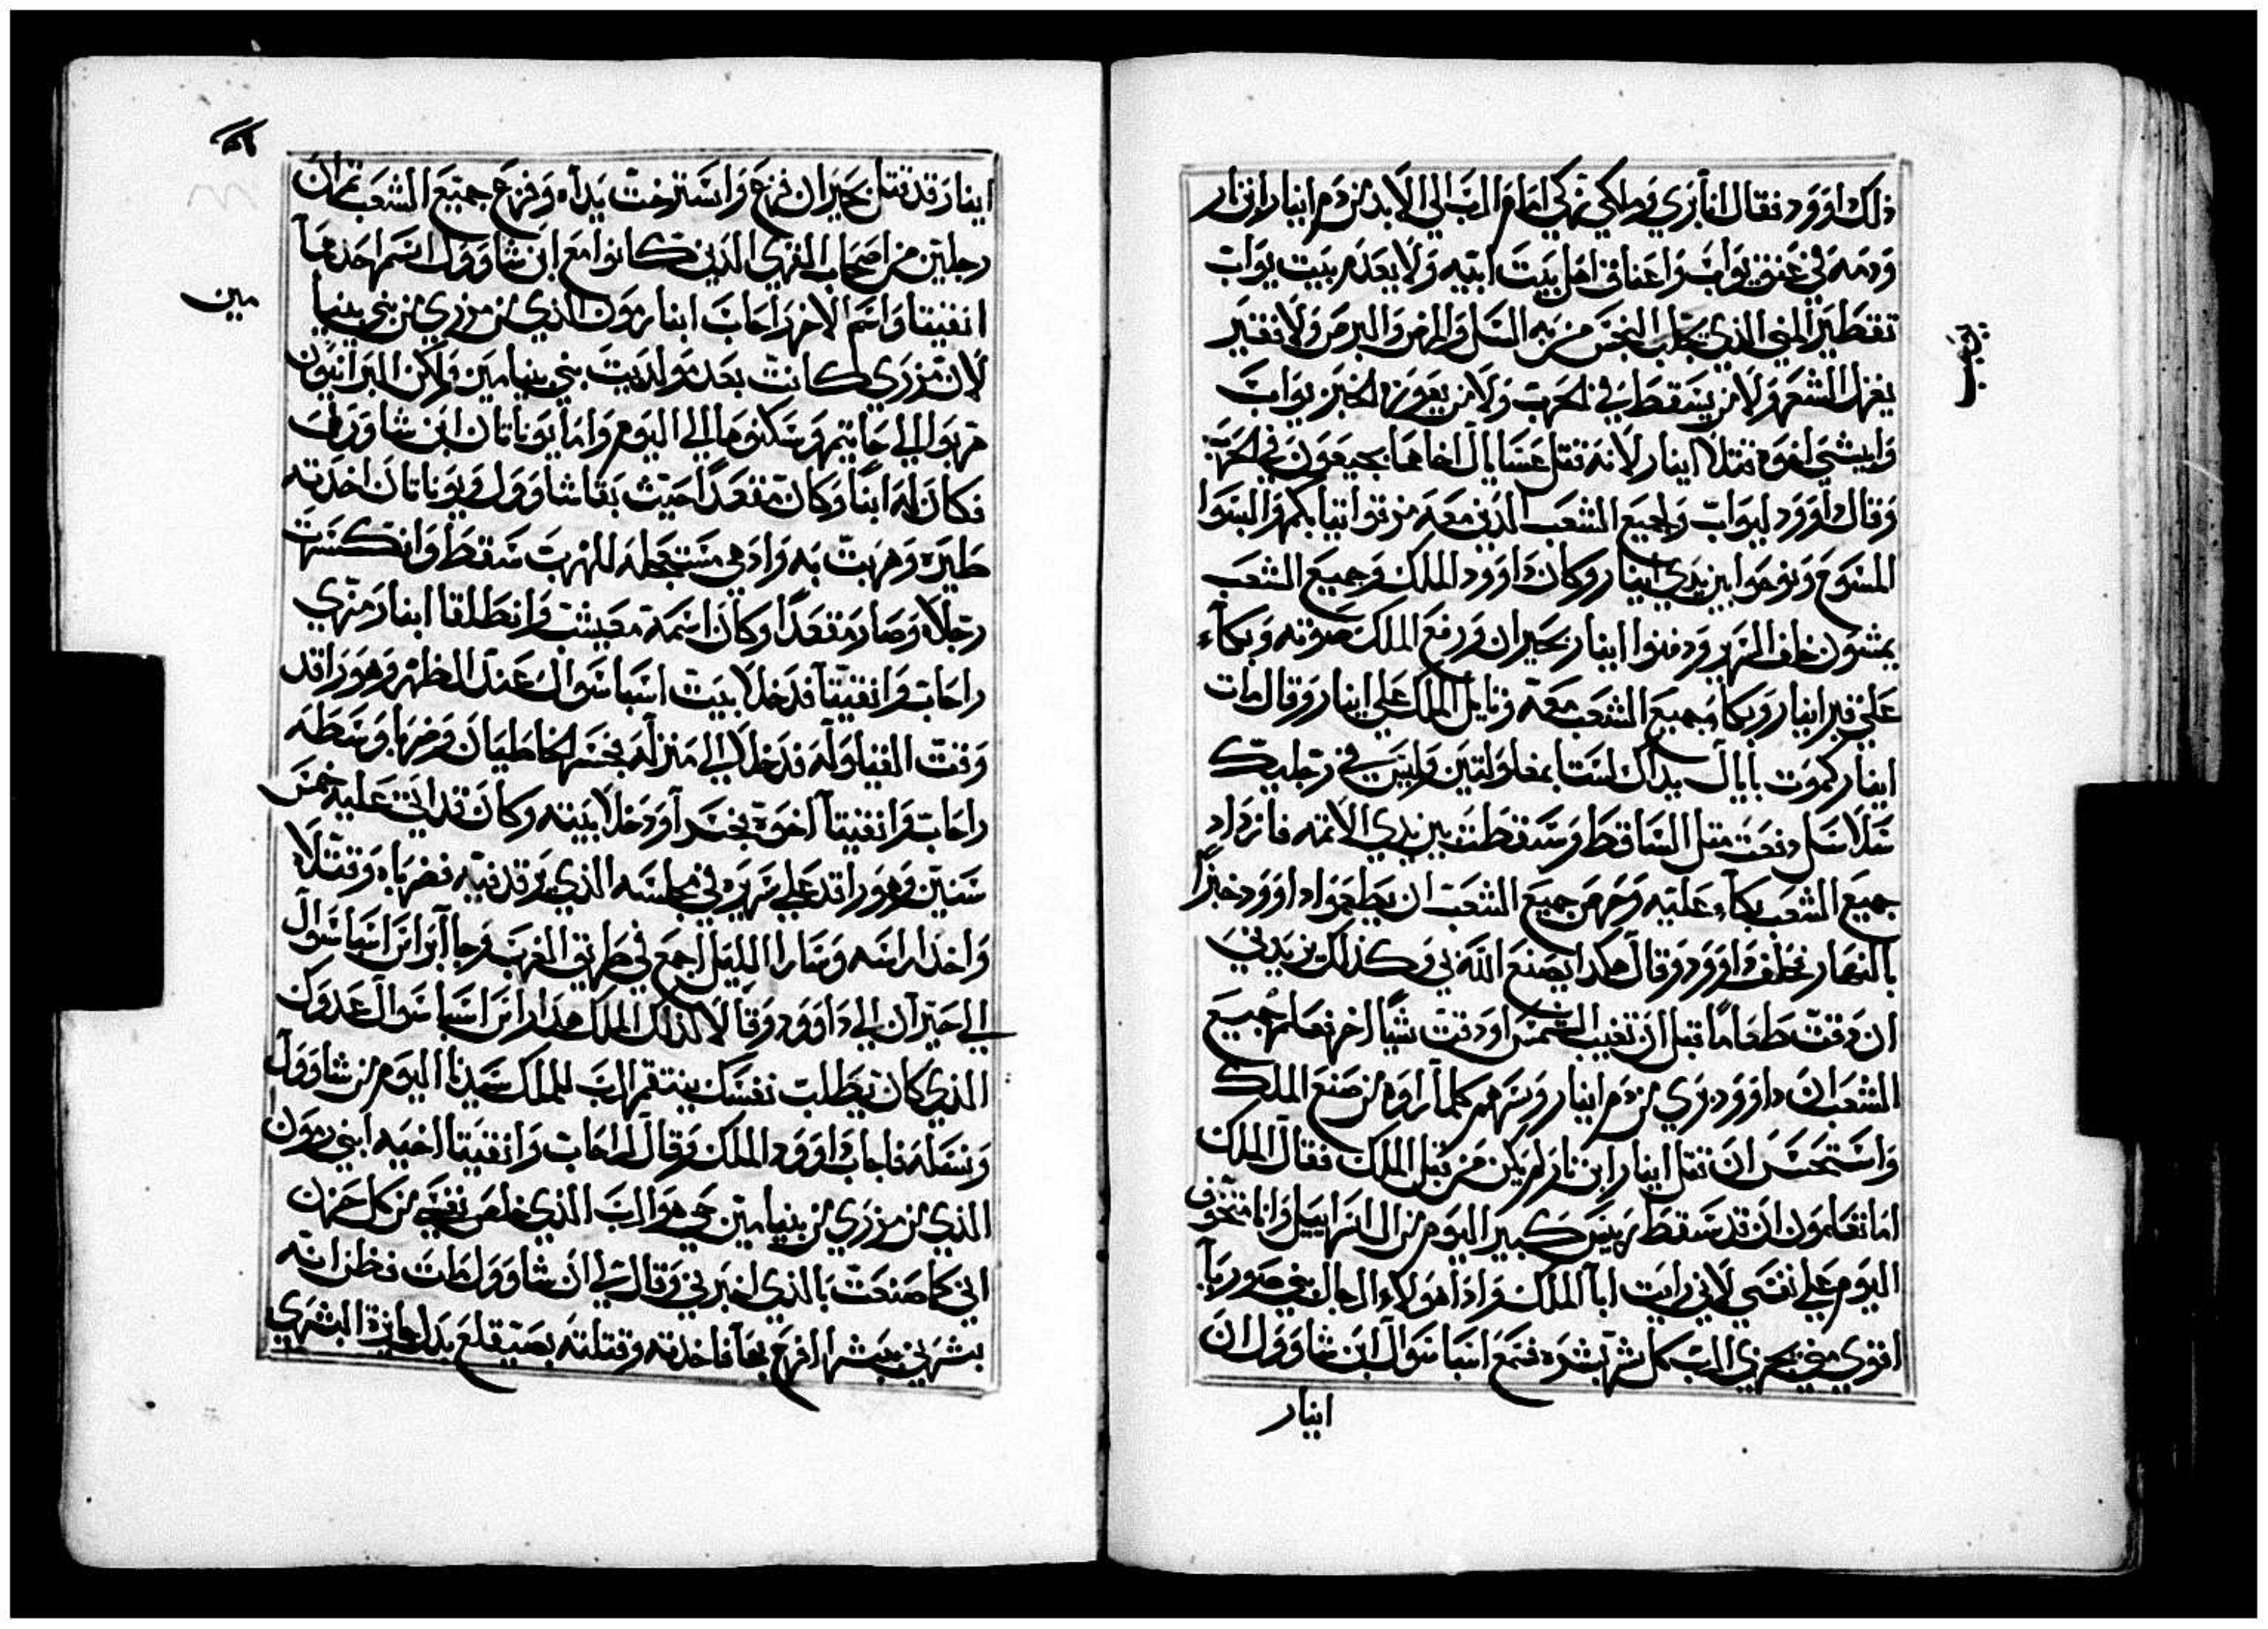 ذلك داوود فقال انا بري وملكي زكي امام الرب الي الابد من دم ابنار ابن نار
ودمه في عنق يواب واعناق اهل بيت ابيه ولا يعدم بيت يواب
تقطير المني الذي يجلب النجس من به السل والمرض والبرص ولا فقير
يغزل الشعر ولا من يسقط في الحرب ولا من يعوزه الخبز يواب
وابيشي اخوه قتلا ابنار لانه قتل عسايال اخاهما بجبعون في الحرب
وقال داوود ليواب ولجميع الشعب الذي معه مزقوا ثيابكم والبسوا
المسوح ونوحوا بين يدي ابنار وكان داوود الملك وجميع الشعب
يمشون خلف السرير ودفنوا ابنار بحبران ورفع الملك صوته وبكاء
علي قبر ابنار وبكا جميع الشعب معه وتايل الملك علي ابنار وقال مات
ابنار كموت يابال يداك لستا بمغلولتين وليس في رجليك
سلاسل وقعت مثل الساقط وسقطت بين يدي الاثمه فازداد
جميع الشعب بكاء عليه وحرص جميع الشعب ان يطعموا داوود خبزًا
بالنهار فحلف داوود وقال هكدا يصنع الله بي وكذلك يزيدني
ان دقت طعامًا قبل ان تغيب الشمس او دقت شيًا اخر فعلم جميع
الشعب ان داوود بري من دم ابنار وسرهم كلما راوه من صنع الملك
واستحسن ان قتل ابنار ابن نار لم يكن من قبل الملك فقال الملك
اما تعلمون ان قد سقط رييس كبير اليوم من ال اسراييل وانا متخوف
اليوم علي نفسي لاني رايت ابا الملك واذا هولاء الرجال بني صوريا
اقوي مني يجزي الرب كل شر بشره فسمع اسباسوال ابن شاوول ان
ابنار
ابنار قد قتل بحبران فزع واسترخت يداه وفزع جميع الشعب ثم ان
رجلين من اصحاب الغزي الذين كانوا مع ابن شاوول اسم احدهما
انغيتا واسم الاخر راحاب ابنا رمون الذي من مزري من بني بنيا
مين
لان مزري كانت بعد مواليد بيت بني بنيامين ولكن البرانيون
هربوا الي جاثيم وسكنوها الي اليوم واما يوناتان ابن شاوول
فكان له ابنًا وكان مقعدًا حيث بقا شاوول ويوناتان اخدته
طيره وهربت به واد هي مستعجله للهرب سقط وانكسرت
رجلاه وصار مقعدًا وكان اسمه مفيبشت وانطلقا ابنا رمزي
راحاب وانغيتا فدخلا بيت اسباسوال عند الظهر وهو راقد
وقت القيلوله فدخلا الي منزله بخسر الخاطيان وضربا وسطه
راحاب وانغيتا اخوه بخسر اودخلا بيته وكان قد اتي عليه خمس
سنين وهو راقد علي سريره في مجلسه الذي يرقد فيه فضرباه وقتلاه
واخدا راسه وسارا الليل اجمع في طريق الغرب وجاآ براس اسباسوال
الي حبران الي داوود وقالا لذلك الملك هدا راس اسباسوال عدوك
الذي كان يطلب نفسك ينتقم الرب للملك سيدنا اليوم من شاوول
ونسله فاجاب داوود الملك وقال لراحاب وانغيتا اخيه ابني رمون
الذي من مزري من بنيامين حي هو الرب الذي خلص نفسي من كل حزن
اني كما صنعت بالذي اخبرني وقال لي ان شاوول مات فظن انه
بشرني ببشرا الفرح بها فاخدته وقتلته بصيقلغ بدل جايزة البشري